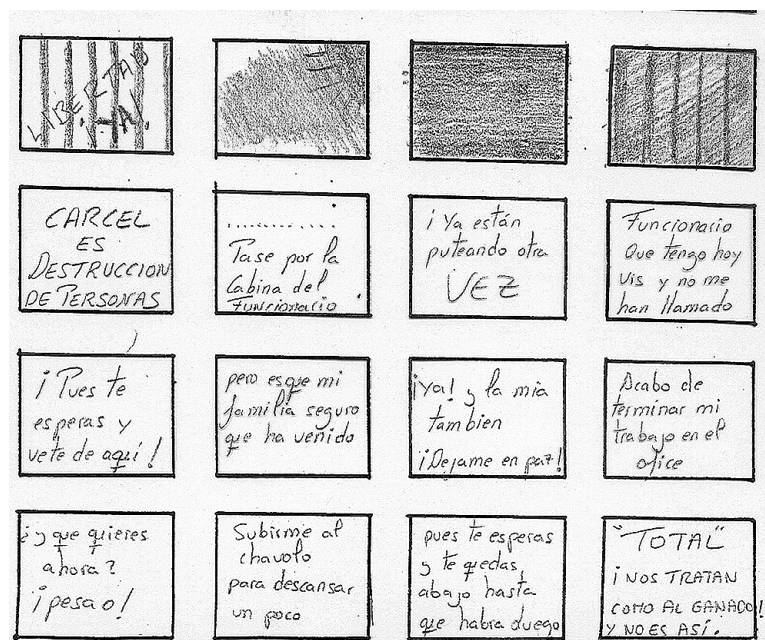 LIBERTAD
¡YA!
CARCEL
ES
DESTRUCCION
DE PERSONAS
............
Pase por la
Cabina del
Funcionario
¡Ya están
puteando otra
VEZ
Funcionario
Que tengo hoy
vis y no me
han llamado
¡Pues te
esperas y
vete de aquí!
pero es que mi
familia seguro
que ha venido
¡Ya! y la mia
tambien
¡Dejame en paz!
Acabo de
terminar mi
trabajo en el
ofice
¿y que quieres
ahora?
¡pesao!
Subirme al
chavolo
para descansar
un poco
pues te esperas
y te quedas
abajo hasta
que habra duego
"TOTAL"
¡NOS TRATAN
COMO AL GANADO!
Y NO ES ASÍ.